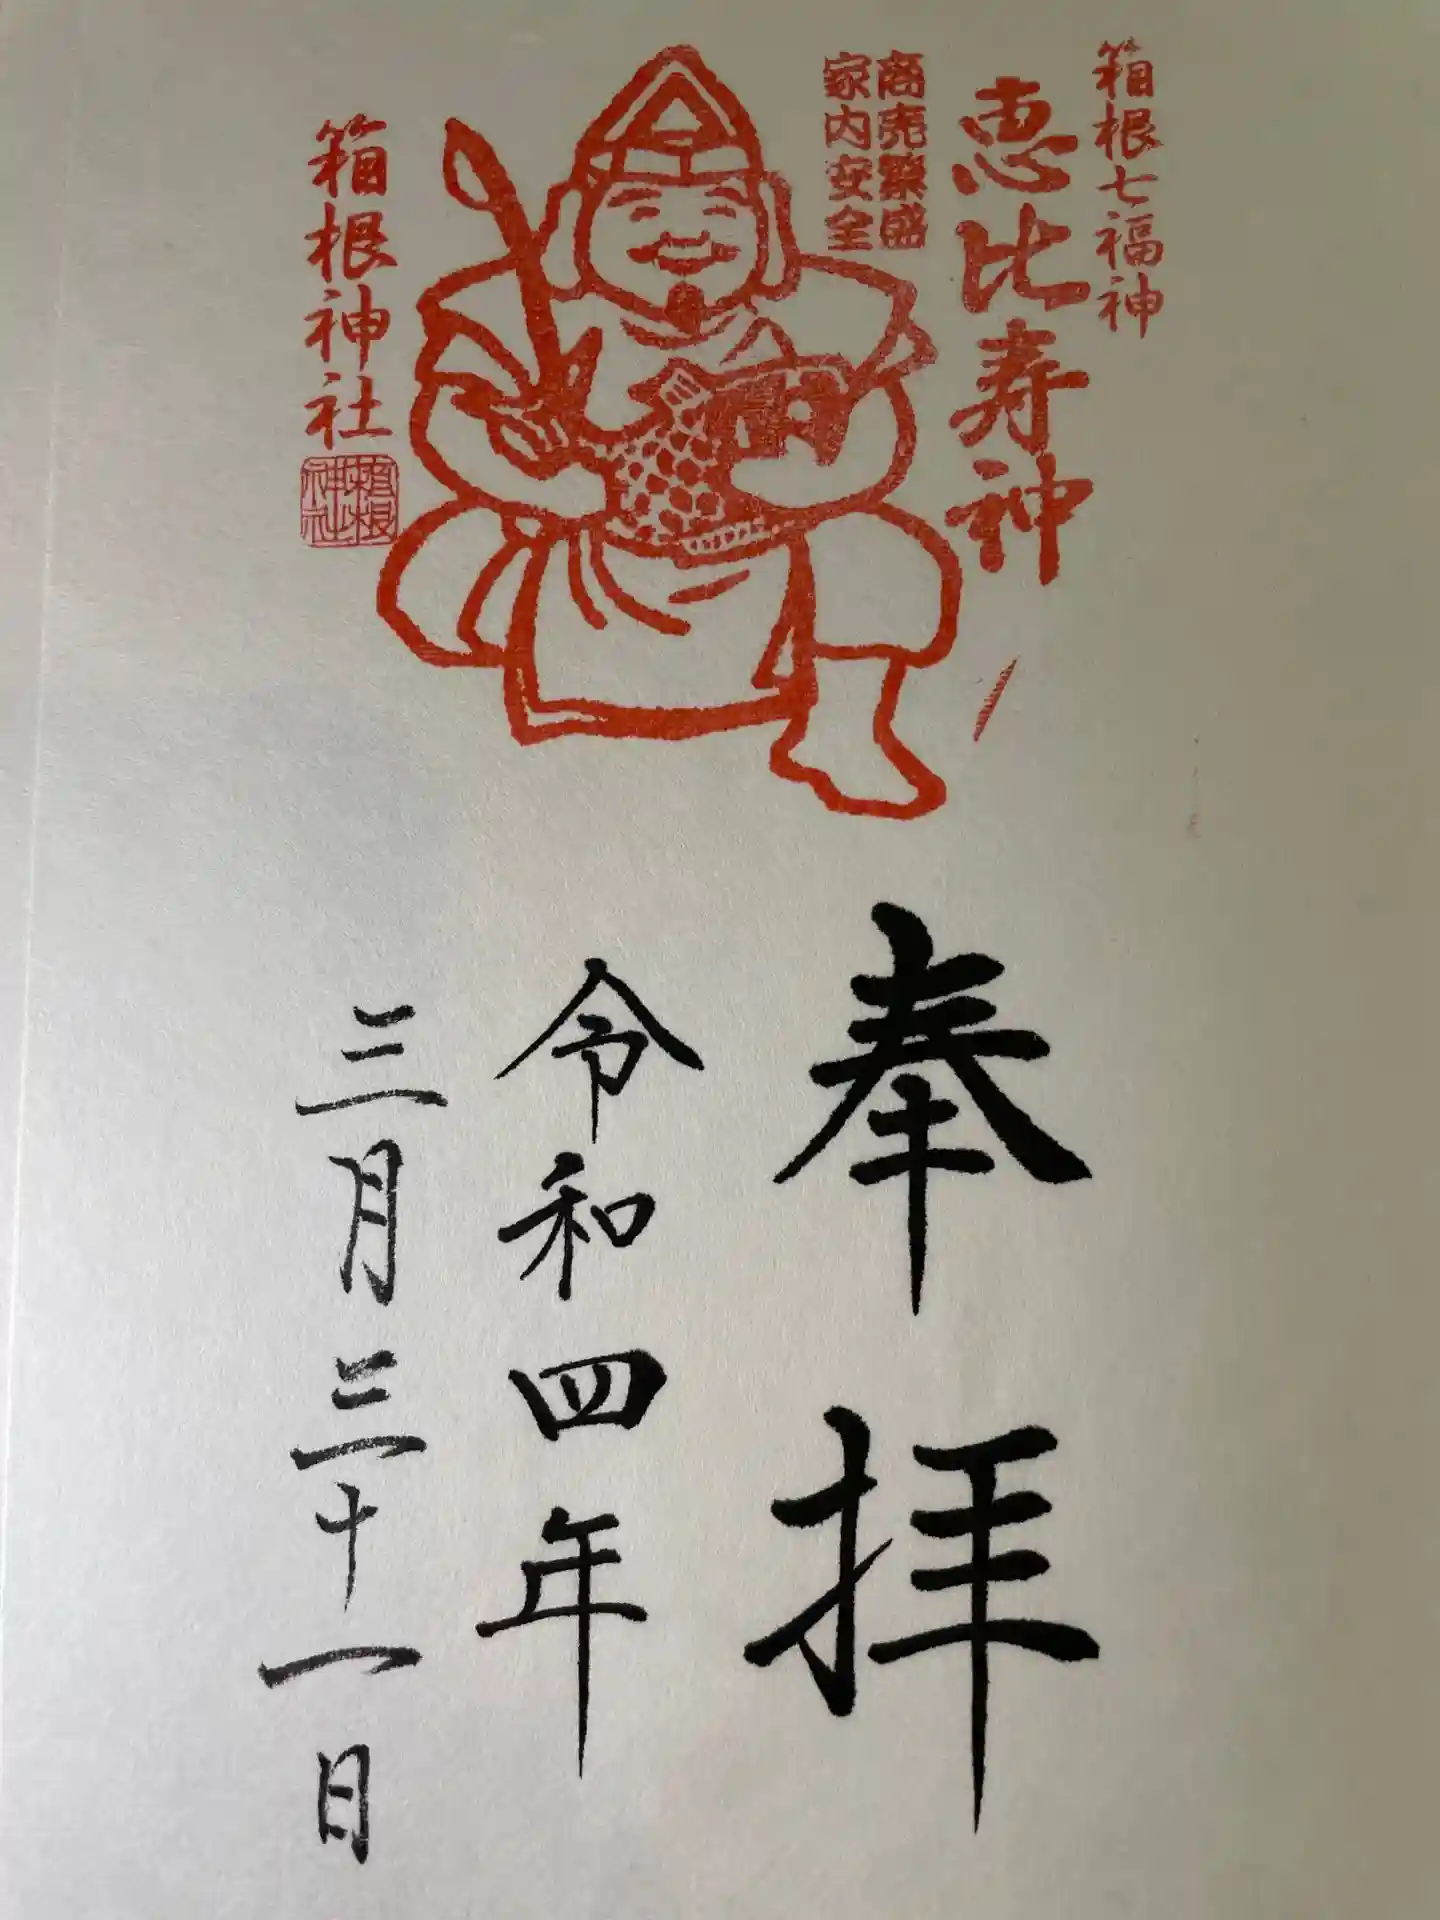 箱根七福神
恵比寿神
商売繁盛
家内安全
箱根神社
箱根神社
奉拝
令和四年
三月三十一日